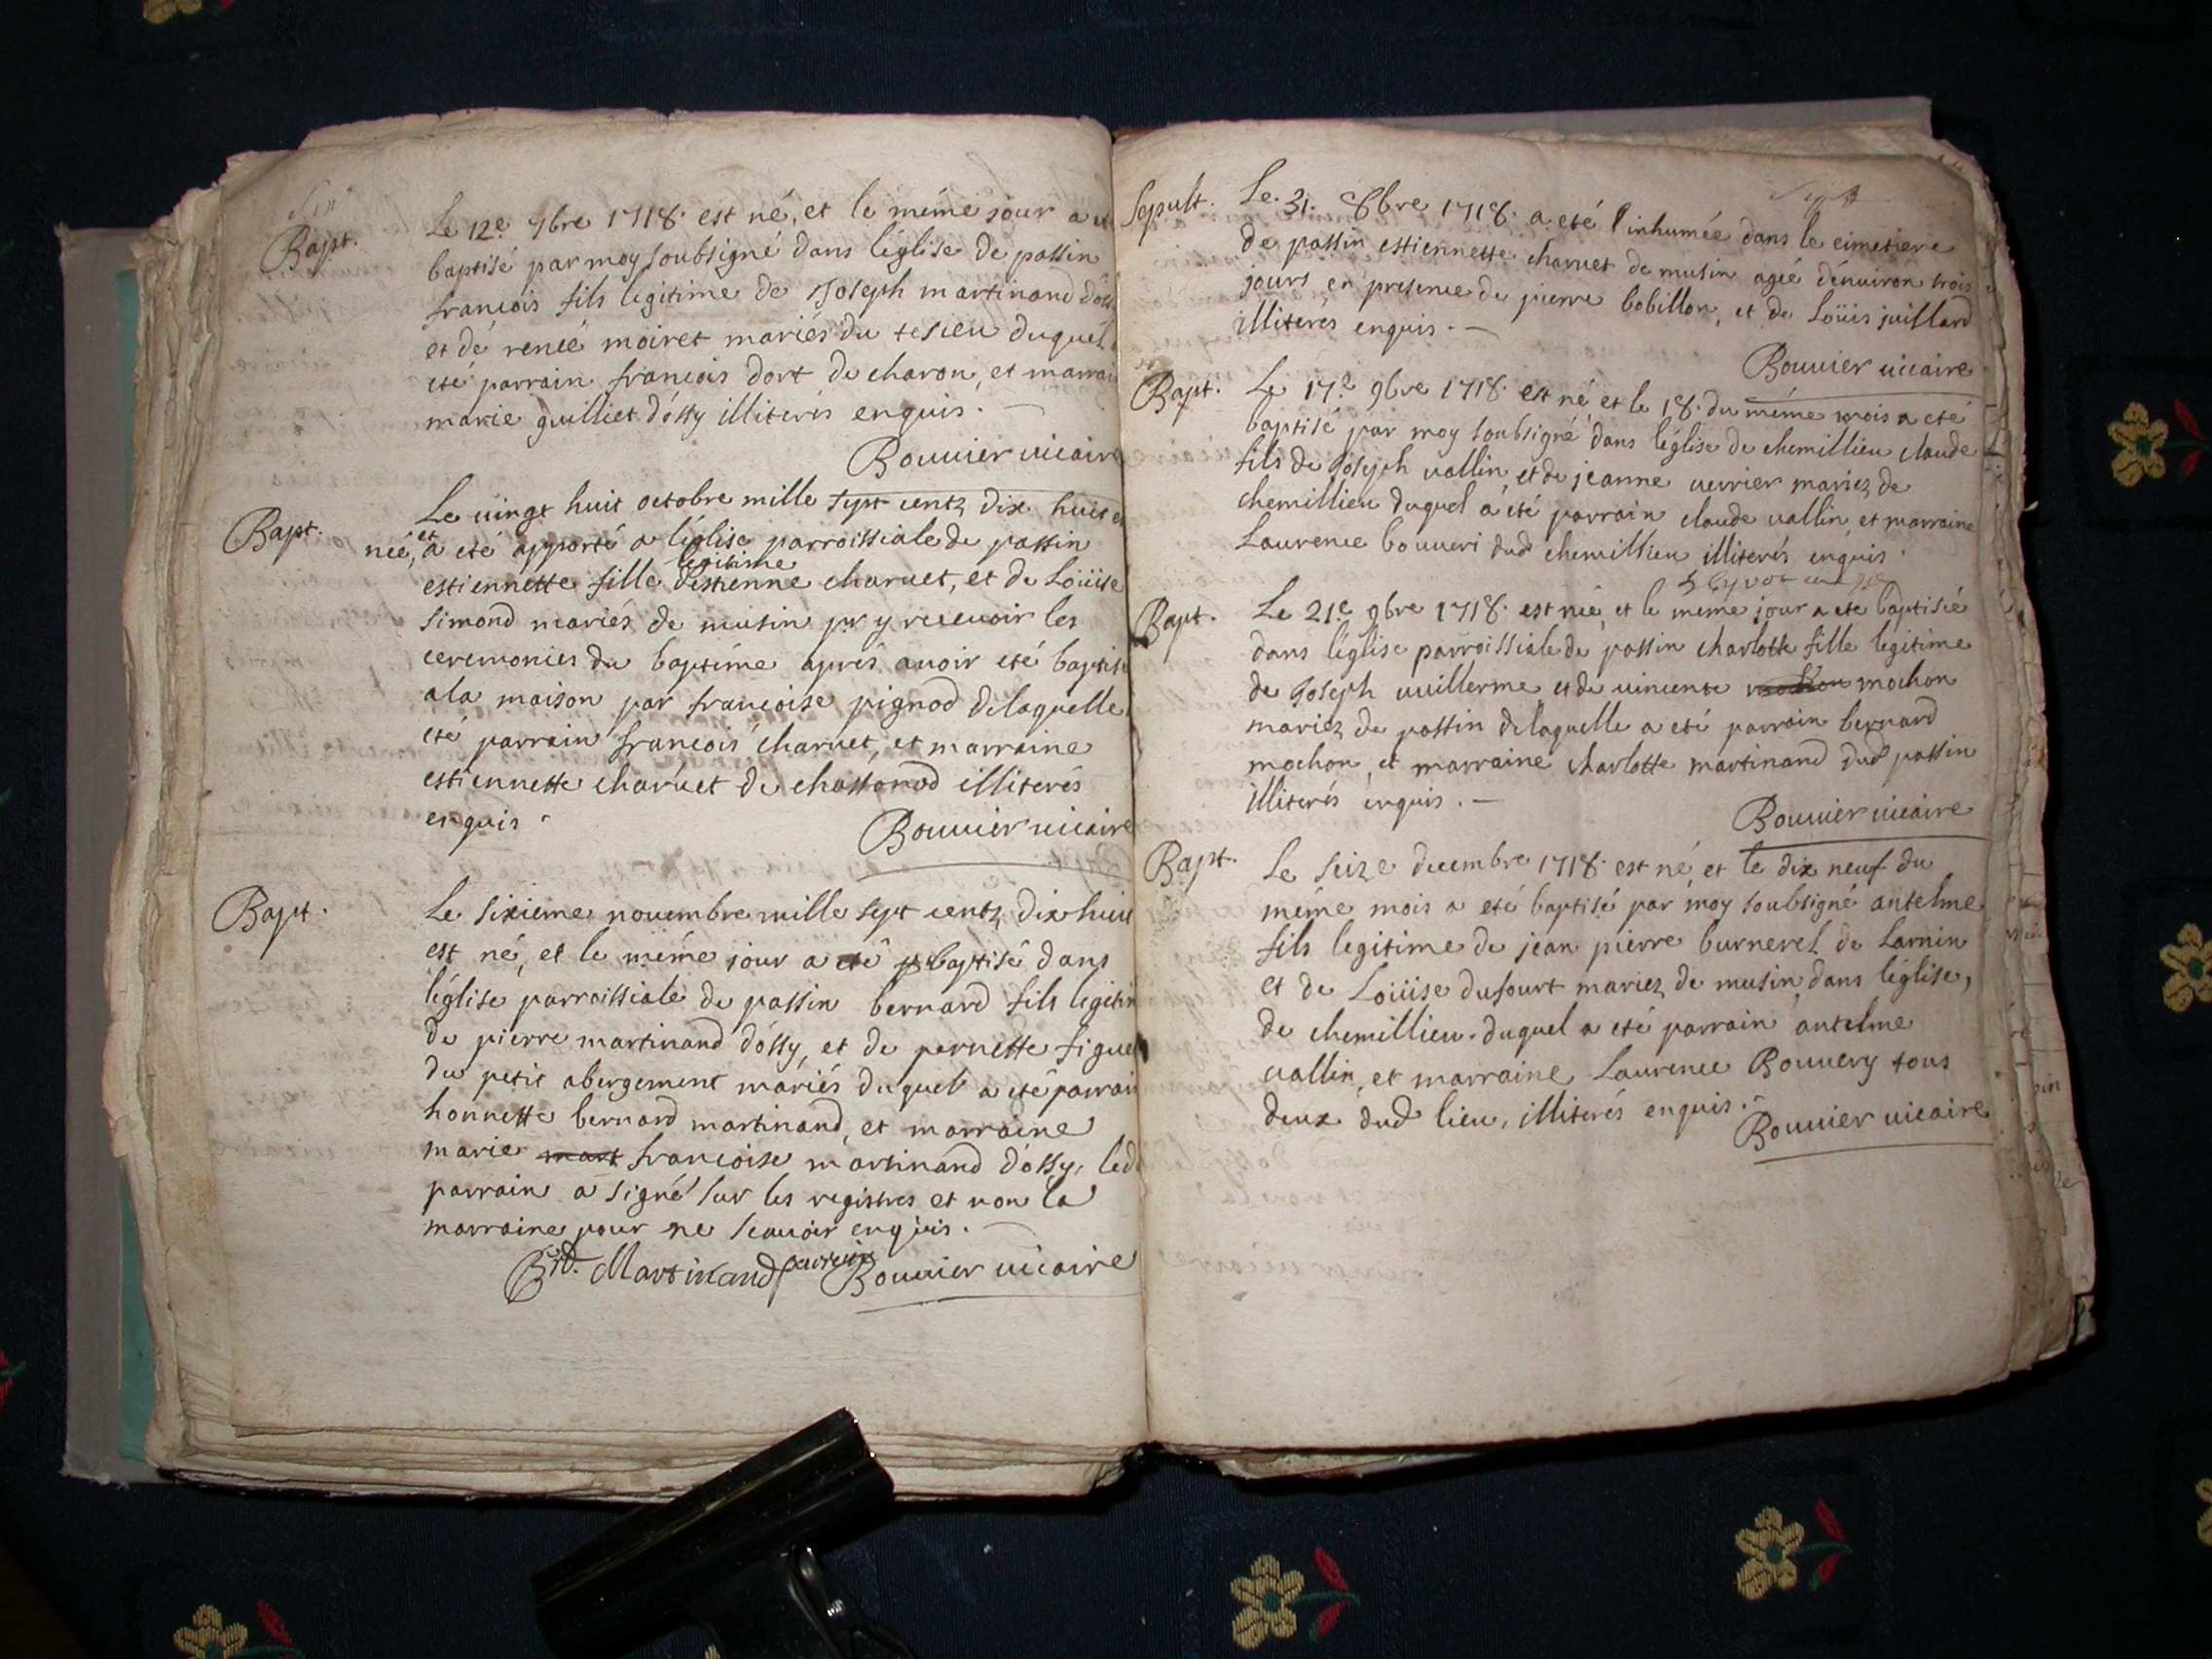 Six
Bapt.
Le 12e. 7bre 1718. est né, et le méme jour a eté
baptisé par moy soubsigné dans léglise de passin
francois fils legitime de Joseph martinand dóssy
et dé renée moiret mariés du tesieu duquel
eté parrain francois dort de charon, et marrai
marie guilliet dóssy illiterés enquis.
Bouuier uicaire
Bapt.
Le uingt huit octobre mille sept centz dix huit es
née, et a eté apporté a léglise parroissiale de passin
estiennette fille legitime destienne charuet, et de Loüise
simond mariés de musin pr y receuoir les
ceremonies du baptéme aprés auoir eté baptisé
a la maison par francoise pignod delaquelle
eté parrain francois charuet, et marraine
estiennette charuet de chassonod illiterés
enquis
Bouuier uicaire
Bapt.
Le sixieme nouembre mille sept centz dix huit
est né, et le méme jour a eté baptisé dans
léglise parroissiale de passin bernard fils legitim
de pierre martinand dóssy, et de pernette figue
du petit abergement mariés duquel a eté parrain
honnette bernard martinand, et marraine
marie mart francoise martinand dóssy, led
parrain a signé sur les registres et non la
marraine pour ne scauoir enquis.
Brd. Martinand parrain Bouuier uicaire
Sept
Sepult.
Le. 31. 8bre 1718. a eté inhumée dans le cimetiere
de passin estiennette charuet de musin agée dénuiron trois
jours en presence de pierre bobillon, et de Loüis juillard
illiterés enquis.
Bouuier uicaire
Bapt.
Le 17e 9bre 1718. est né, et le 18. du méme mois a eté
baptisé par moy soubsigné dans léglise de chemillieu claude
fils de Joseph uallin, et de jeanne uerrier mariez de
chemillieu duquel a eté parrain claude uallin, et marraine
Laurence bouueri dud chemillieu illiterés enquis
Bapt.
Le 21e 9bre 1718. est née, et le méme jour a eté baptisée
dans léglise parroissiale de passin charlotte fille legitime
de Joseph uuillerme et de uincente mochon mochon
mariez de passin delaquelle a eté parrain bernard
mochon, et marraine charlotte martinand dud passin
illiterés enquis.
Bouuier uicaire
Bapt.
Le seize decembre 1718. est né, et le dix neuf du
méme mois a eté baptisé par moy soubsigné antelme
fils legitime de jean pierre burneret de Larnin
et de Loüise dufourt mariez de musin, dans léglise,
de chemillieu. duquel a eté parrain antelme
uallin, et marraine Laurence Bouuery tous
deux dud lieu, illiterés enquis.
Bouuier uicaire